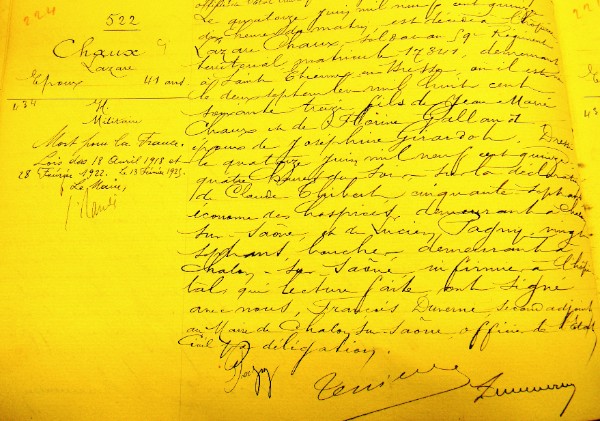 224
522
Chaux
Lazare
Epoux 41 ans
434
H.
Militaire
Mort pour la France.
Lois des 18 Avril 1918 et
28 Février 1922. Le 13 Février 1925.
Le Maire,
Le quatorze Juin mil neuf cent quinze
heures du matin, est décédé à l'hôpital
Lazare Chaux, soldat au 59e Régiment
territorial matricule 17841, demeurant
à Saint Etienne en Bresse, où il est né
le deux septembre mil huit cent
soixante treize, fils de Jean Marie
Chaux et de Florine Guillard
époux de Joséphine Girardot. Dressé
le quatorze Juin mil neuf cent quinze
quatre heures du soir, sur la déclaration
de Claude cinquante sept ans
économe des hospices, demeurant à
sur-Saône, et de Lucien Pagny, vingt
sept ans, boucher demeurant à
Chalon-sur-Saône, infirmier à l'hôpi
tal, qui lecture faite ont signé
avec nous, François Duverne, second adjoint
au Maire de Chalon-sur-Saône, officier de l'Etat
Civil par délégation.